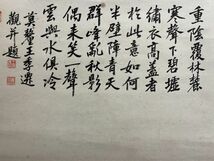 重陰覆林麓
寒聲下碧墟
繡衣高蓋者
於此意如何
半壁障青天
群峰亂秋影
偶來笑一聲
雲與水俱冷
莫釐王季遷
觀并題